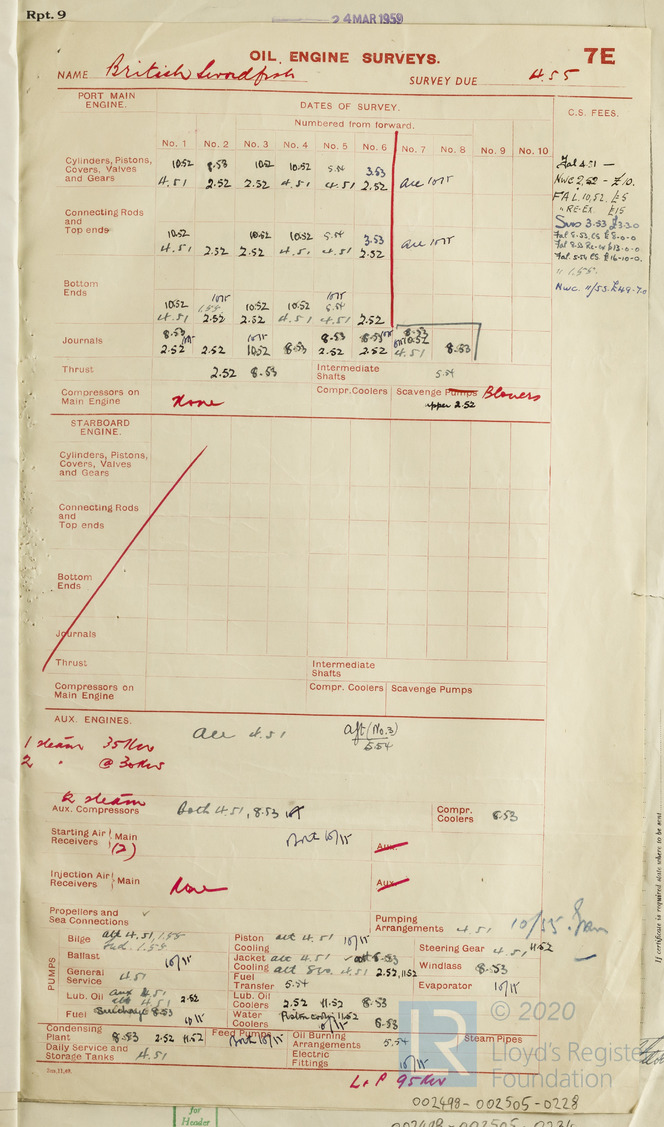 Rpt. 9
24 MAR 1959
OIL ENGINE SURVEYS. 7E
NAME British Swordfish SURVEY DUE 4.55
PORT MAIN ENGINE. DATES OF SURVEY. C.S. FEES.
Numbered from forward.
No. 1 No. 2 No. 3 No. 4 No. 5 No. 6 No. 7 No. 8 No. 9 No. 10
Cylinders, Pistons, Covers, Valves and Gears
10.52 8.53 10.52 10.52 5.54 3.53
4.51 2.52 2.52 4.51 4.51 2.52
Fal 4.51 —
Nwc 2.52 - £10.
FAL 10.52. £5
" RE-EX. £15
Swo 3.53 £3.3.0
Nwc. 11/53. £49.7.0
Connecting Rods and Top ends
10.52 10.52 10.52 5.54 3.53
4.51 2.52 2.52 4.51 4.51 2.52
Bottom Ends
10.52 1.55 10.52 10.52 5.54
4.51 2.52 2.52 4.51 4.51 2.52
Journals
8.53 10/55 8.53 8.53 8.53 10.52
2.52 2.52 10.52 8.53 2.52 2.52 4.51 8.53
Thrust 2.52 8.53 Intermediate Shafts 5.54
Compressors on Main Engine None Compr. Coolers Scavenge Pumps Blowers
upper 2.52
STARBOARD ENGINE.
Cylinders, Pistons, Covers, Valves and Gears
Connecting Rods and Top ends
Bottom Ends
Journals
Thrust Intermediate Shafts
Compressors on Main Engine Compr. Coolers Scavenge Pumps
AUX. ENGINES.
all 4.51 aft (No.3) 5.54
1 steam 35Kw
2 " @ 30Kws
2 steam
Aux. Compressors Both 4.51, 8.53 Compr. Coolers 8.53
Starting Air Receivers Main (2) Aux.
Injection Air Receivers Main None Aux.
Propellers and Sea Connections Pumping Arrangements 4.51 10/55.
PUMPS
Bilge aft 4.51 1.55
Piston Cooling aft 4.51
Steering Gear 4.51, 11.52
Ballast
Jacket Cooling aft 8.53
Windlass 8.53
General Service 4.51
Fuel Transfer 4.51 2.52, 11.52
5.54
Evaporator
Lub. Oil aux 4.51 2.52
aft 4.51
Lub. Oil Coolers 2.52 11.52 8.53
Fuel Surcharge 8.53
Water Coolers Piston cooling 11.52 8.53
Condensing Plant 8.53 2.52 11.52 Feed Pumps Oil Burning Arrangements 5.54 Steam Pipes
Daily Service and Storage Tanks 4.51 Electric Fittings
L.P 95Kw
© 2020
LR
Lloyd's Register Foundation
002498-002505-0228
for
Header
If certificate is required state where to be sent